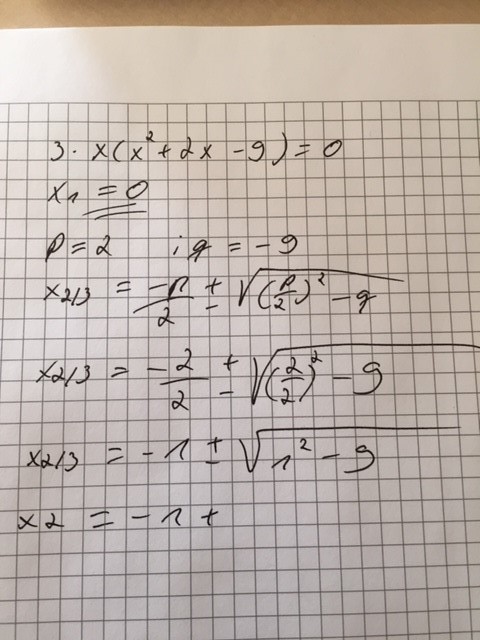 3. x(x²+2x-9)=0
x₁ =0
p=2 ; q = -9
x2/3 = -p/2 ± √((p/2)² - q)
x2/3 = -2/2 ± √((2/2)² - 9)
x2/3 = -1 ± √(1² - 9)
x2 = -1 +